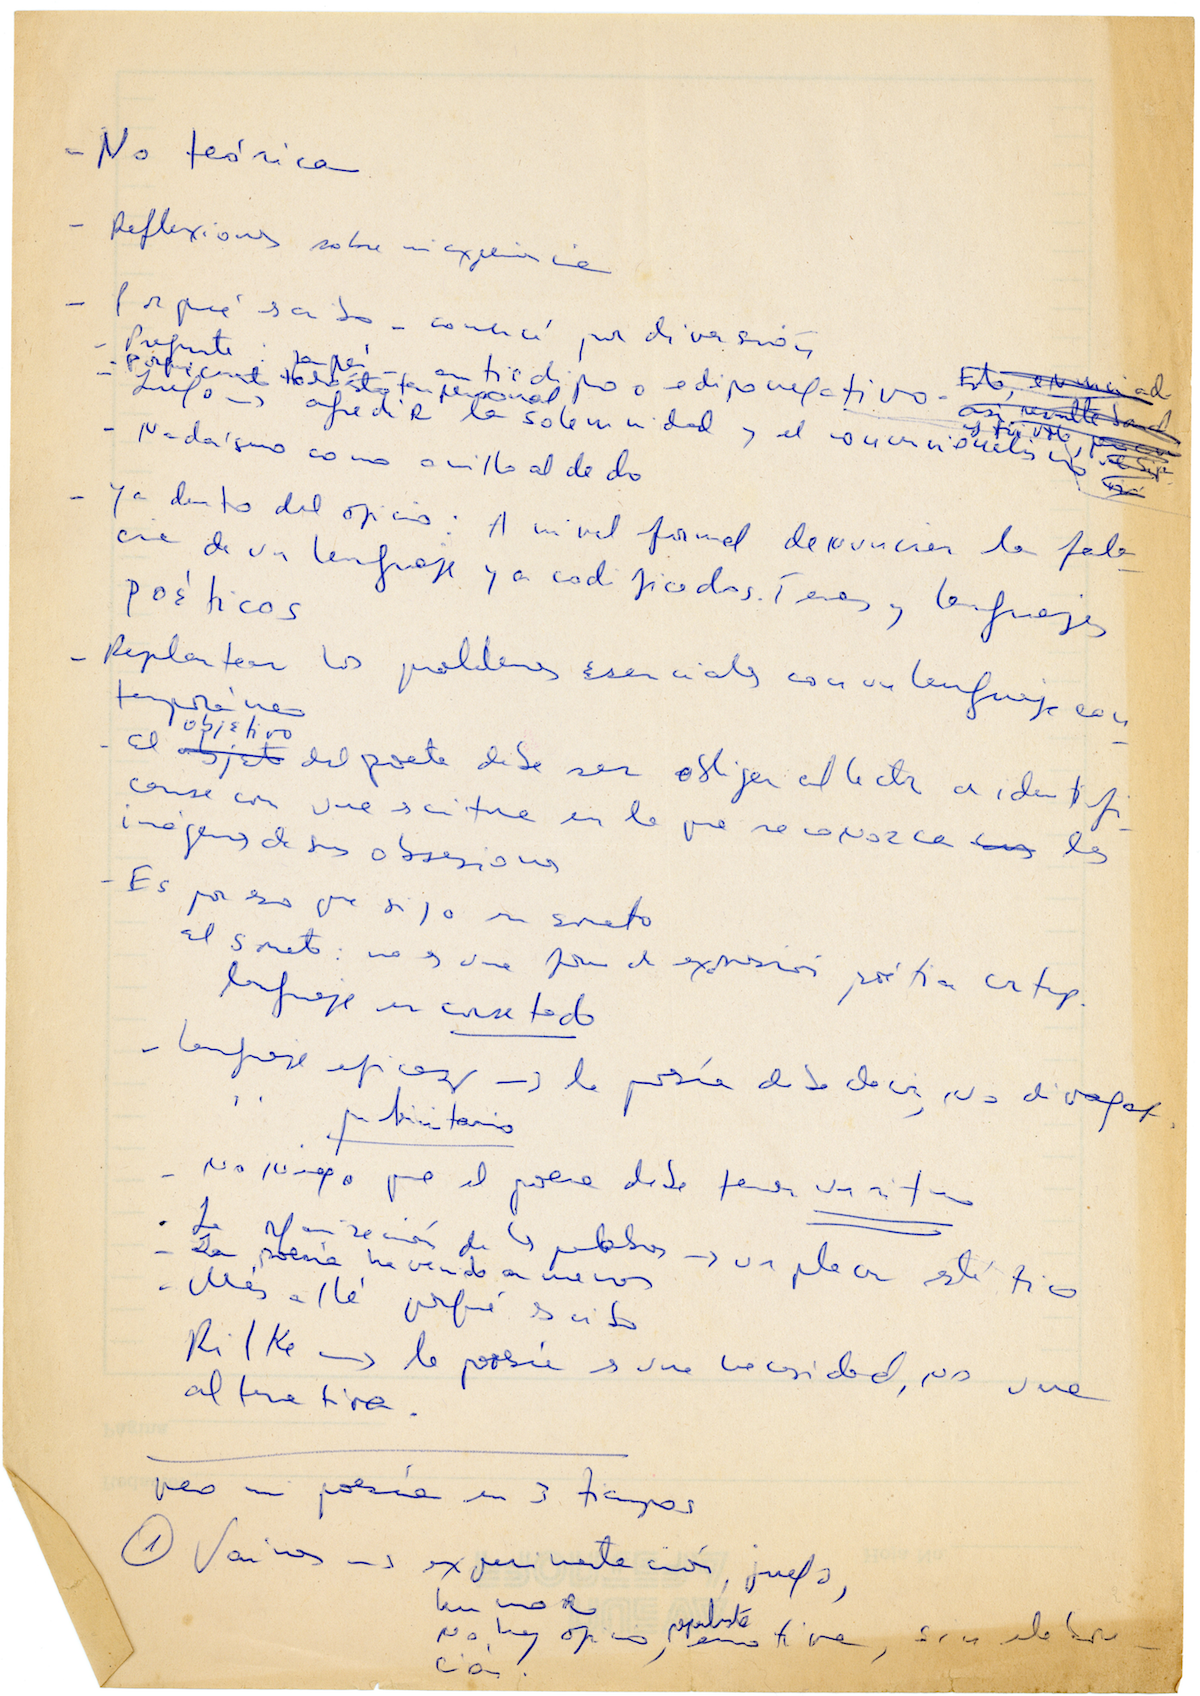 - No teórica
- Reflexiones sobre mi experiencia
- Porqué escribo - comencé por diversión
- Pregunta: papá - antiedipo o edipo negativo - Esto, enunciad
así, resulta
- todo esto tan personal
Luego → agredir la solemnidad y el convencionalismo
- Nadaísmo como anillo al dedo
- Ya dentro del oficio: A nivel formal denunciar la fala-
cia de un lenguaje ya codificados. Temas y lenguajes
poéticos
- Replantear los problemas esenciales con un lenguaje con-
temporáneo
objetivo
- El objeto del poeta debe ser obligar al lector a identifi-
carse con una escritura en la que reconozca las
imágenes de sus obsesiones
- Es por eso que dijo un soneto
El soneto: no es una forma de expresión poética contemp.
lenguaje encorsetado
- Lenguaje eficaz → la poesía debe decir, no divagar.
" publicitario
- No niego que el poema debe tener un ritmo
- La organización de las palabras → un placer estético
- La poesía ha venido a menos
- Más allá porqué escribo
Rilke → la poesía es una necesidad, no una
alternativa.
veo mi poesía en 3 tiempos
① Vainas → experimentación, juego,
humor
No hay oficio, repentista emotiva, sin elabora-
ción.